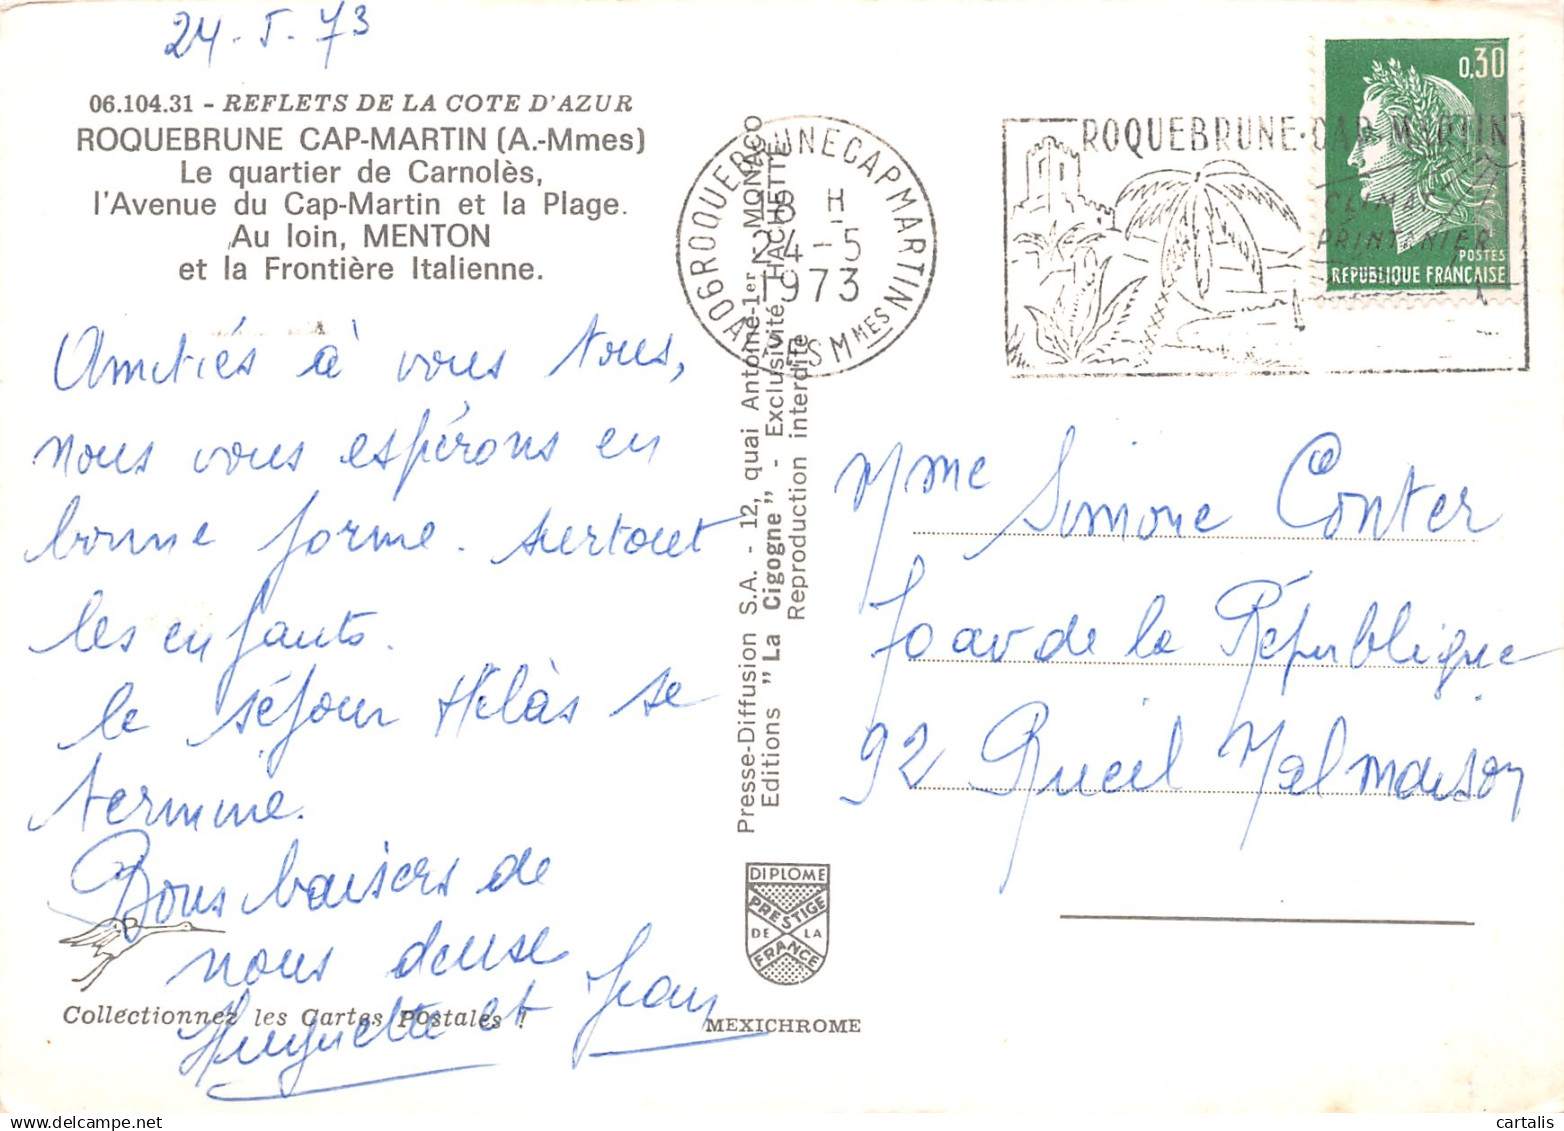 24-5-73
06.104.31 - REFLETS DE LA COTE D'AZUR
ROQUEBRUNE CAP-MARTIN (A.-Mmes)
Le quartier de Carnolès,
l'Avenue du Cap-Martin et la Plage.
Au loin, MENTON
et la Frontière Italienne.
Amitiés à vous tous,
nous vous espérons en
bonne forme. surtout
les enfants.
le séjour Hélàs se
termine.
Bons baisers de
nous deux
Huguette et Jean
Collectionnez les Cartes Postales !
Presse-Diffusion S.A. - 12, quai Antoine-1er - MONACO
Editions "La Cigogne" - Exclusivité HACHETTE
Reproduction interdite
DIPLOME
PRESTIGE
DE LA
FRANCE
MEXICHROME
06 ROQUEBRUNE CAP MARTIN
8 H
24-5
1973
ALPES MMES
ROQUEBRUNE-CAP MARTIN
CLIMAT
PRINTANIER
0,30
POSTES
REPUBLIQUE FRANÇAISE
Mme Simone Conter
70 av de la République
92 Rueil Malmaison
cartalis